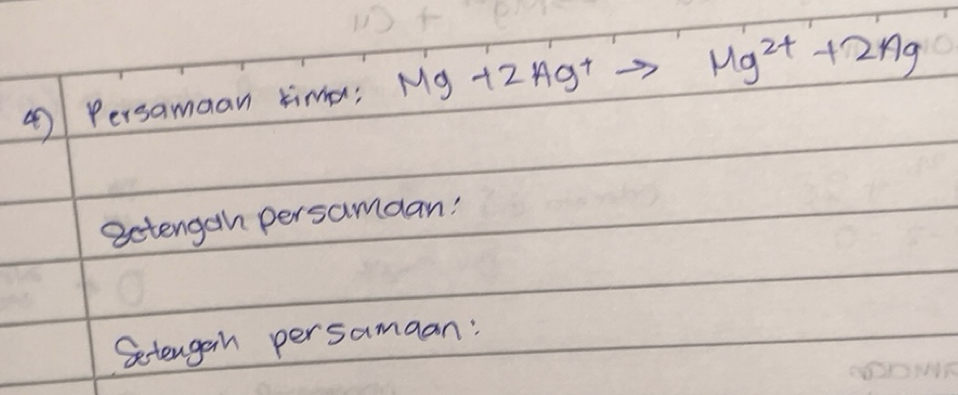 4) Persamaan kimia: Mg + 2Ag⁺ → Mg²⁺ + 2Ag
Setengah persamaan:
Setengah persamaan: